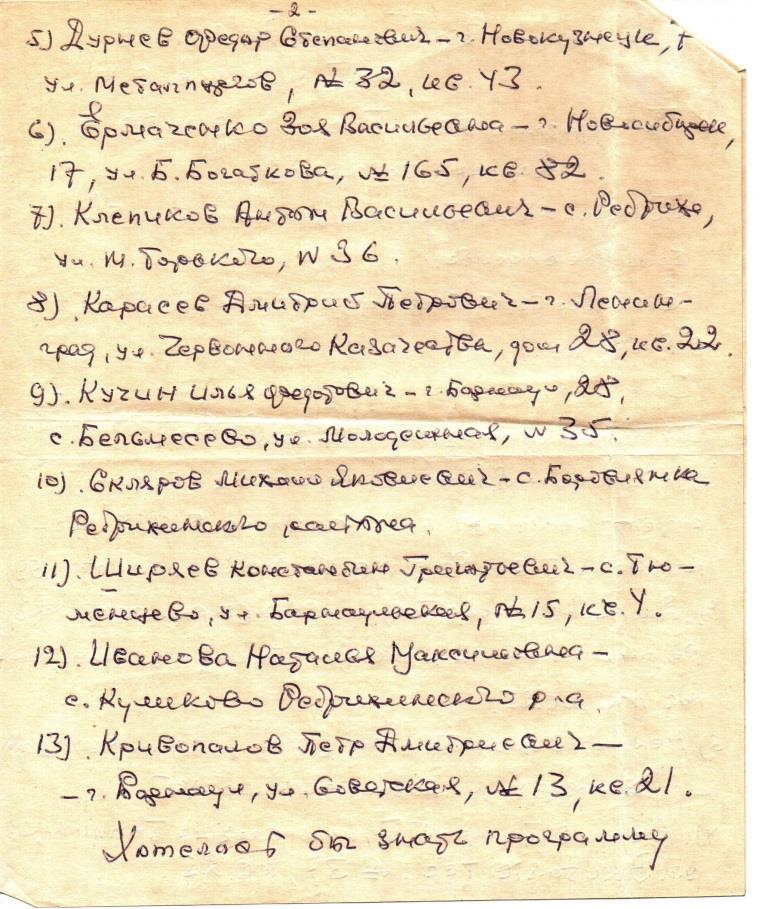 - 2 -
5) Дурнев Федор Степанович - г. Новокузнецк, +
ул. Металлургов, № 32, кв. 43.
6). Ермаченко Зоя Васильевна - г. Новосибирск,
17, ул. Б. Богаткова, № 165, кв. 82.
7). Клепиков Антон Васильевич - с. Ребриха,
ул. М. Горького, № 36.
8). Карасев Дмитрий Петрович - г. Ленин-
град, ул. Червонного Казачества, дом 28, кв. 22.
9). Кучин Илья Федотович - г. Барнаул, 28,
с. Бельмесево, ул. Молодежная, № 35.
10). Скляров Михаил Яковлевич - с. Боровлянка
Ребрихинского района.
11). Ширяев Константин Григорьевич - с. Тю-
менцево, ул. Барнаульская, № 15, кв. 4.
12). Иванова Наталья Максимовна -
с. Куликово Ребрихинского р-на.
13). Кривопалов Петр Дмитриевич -
- г. Барнаул, ул. Советская, № 13, кв. 21.
Хотелось бы знать программу